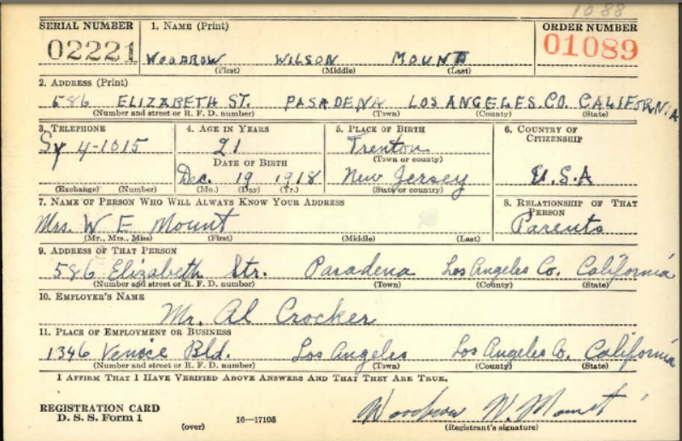 1088
SERIAL NUMBER 1. NAME (Print) ORDER NUMBER
02221 WOODROW WILSON MOUNT 01089
(First) (Middle) (Last)
2. ADDRESS (Print)
586 ELIZABETH ST. PASADENA LOS ANGELES.CO. CALIFORNIA
(Number and street or R. F. D. number) (Town) (County) (State)
3. TELEPHONE 4. AGE IN YEARS 5. PLACE OF BIRTH 6. COUNTRY OF CITIZENSHIP
Sy 4-1015 21 Trenton
(Town or county)
DATE OF BIRTH
Dec. 19 1918 New Jersey U.S.A
(Exchange) (Number) (Mo.) (Day) (Yr.) (State or country)
7. NAME OF PERSON WHO WILL ALWAYS KNOW YOUR ADDRESS 8. RELATIONSHIP OF THAT PERSON
Mrs. W E Mount Parents
(Mr., Mrs., Miss) (First) (Middle) (Last)
9. ADDRESS OF THAT PERSON
586 Elizabeth Str. Pasadena Los Angeles Co. California
(Number and street or R. F. D. number) (Town) (County) (State)
10. EMPLOYER'S NAME
Mr. Al Crocker
11. PLACE OF EMPLOYMENT OR BUSINESS
1346 Venice Bld. Los Angeles Los Angeles Co. California
(Number and street or R. F. D. number) (Town) (County) (State)
I AFFIRM THAT I HAVE VERIFIED ABOVE ANSWERS AND THAT THEY ARE TRUE.
REGISTRATION CARD
D. S. S. Form 1 16—17105 Woodrow W. Mount
(over) (Registrant's signature)